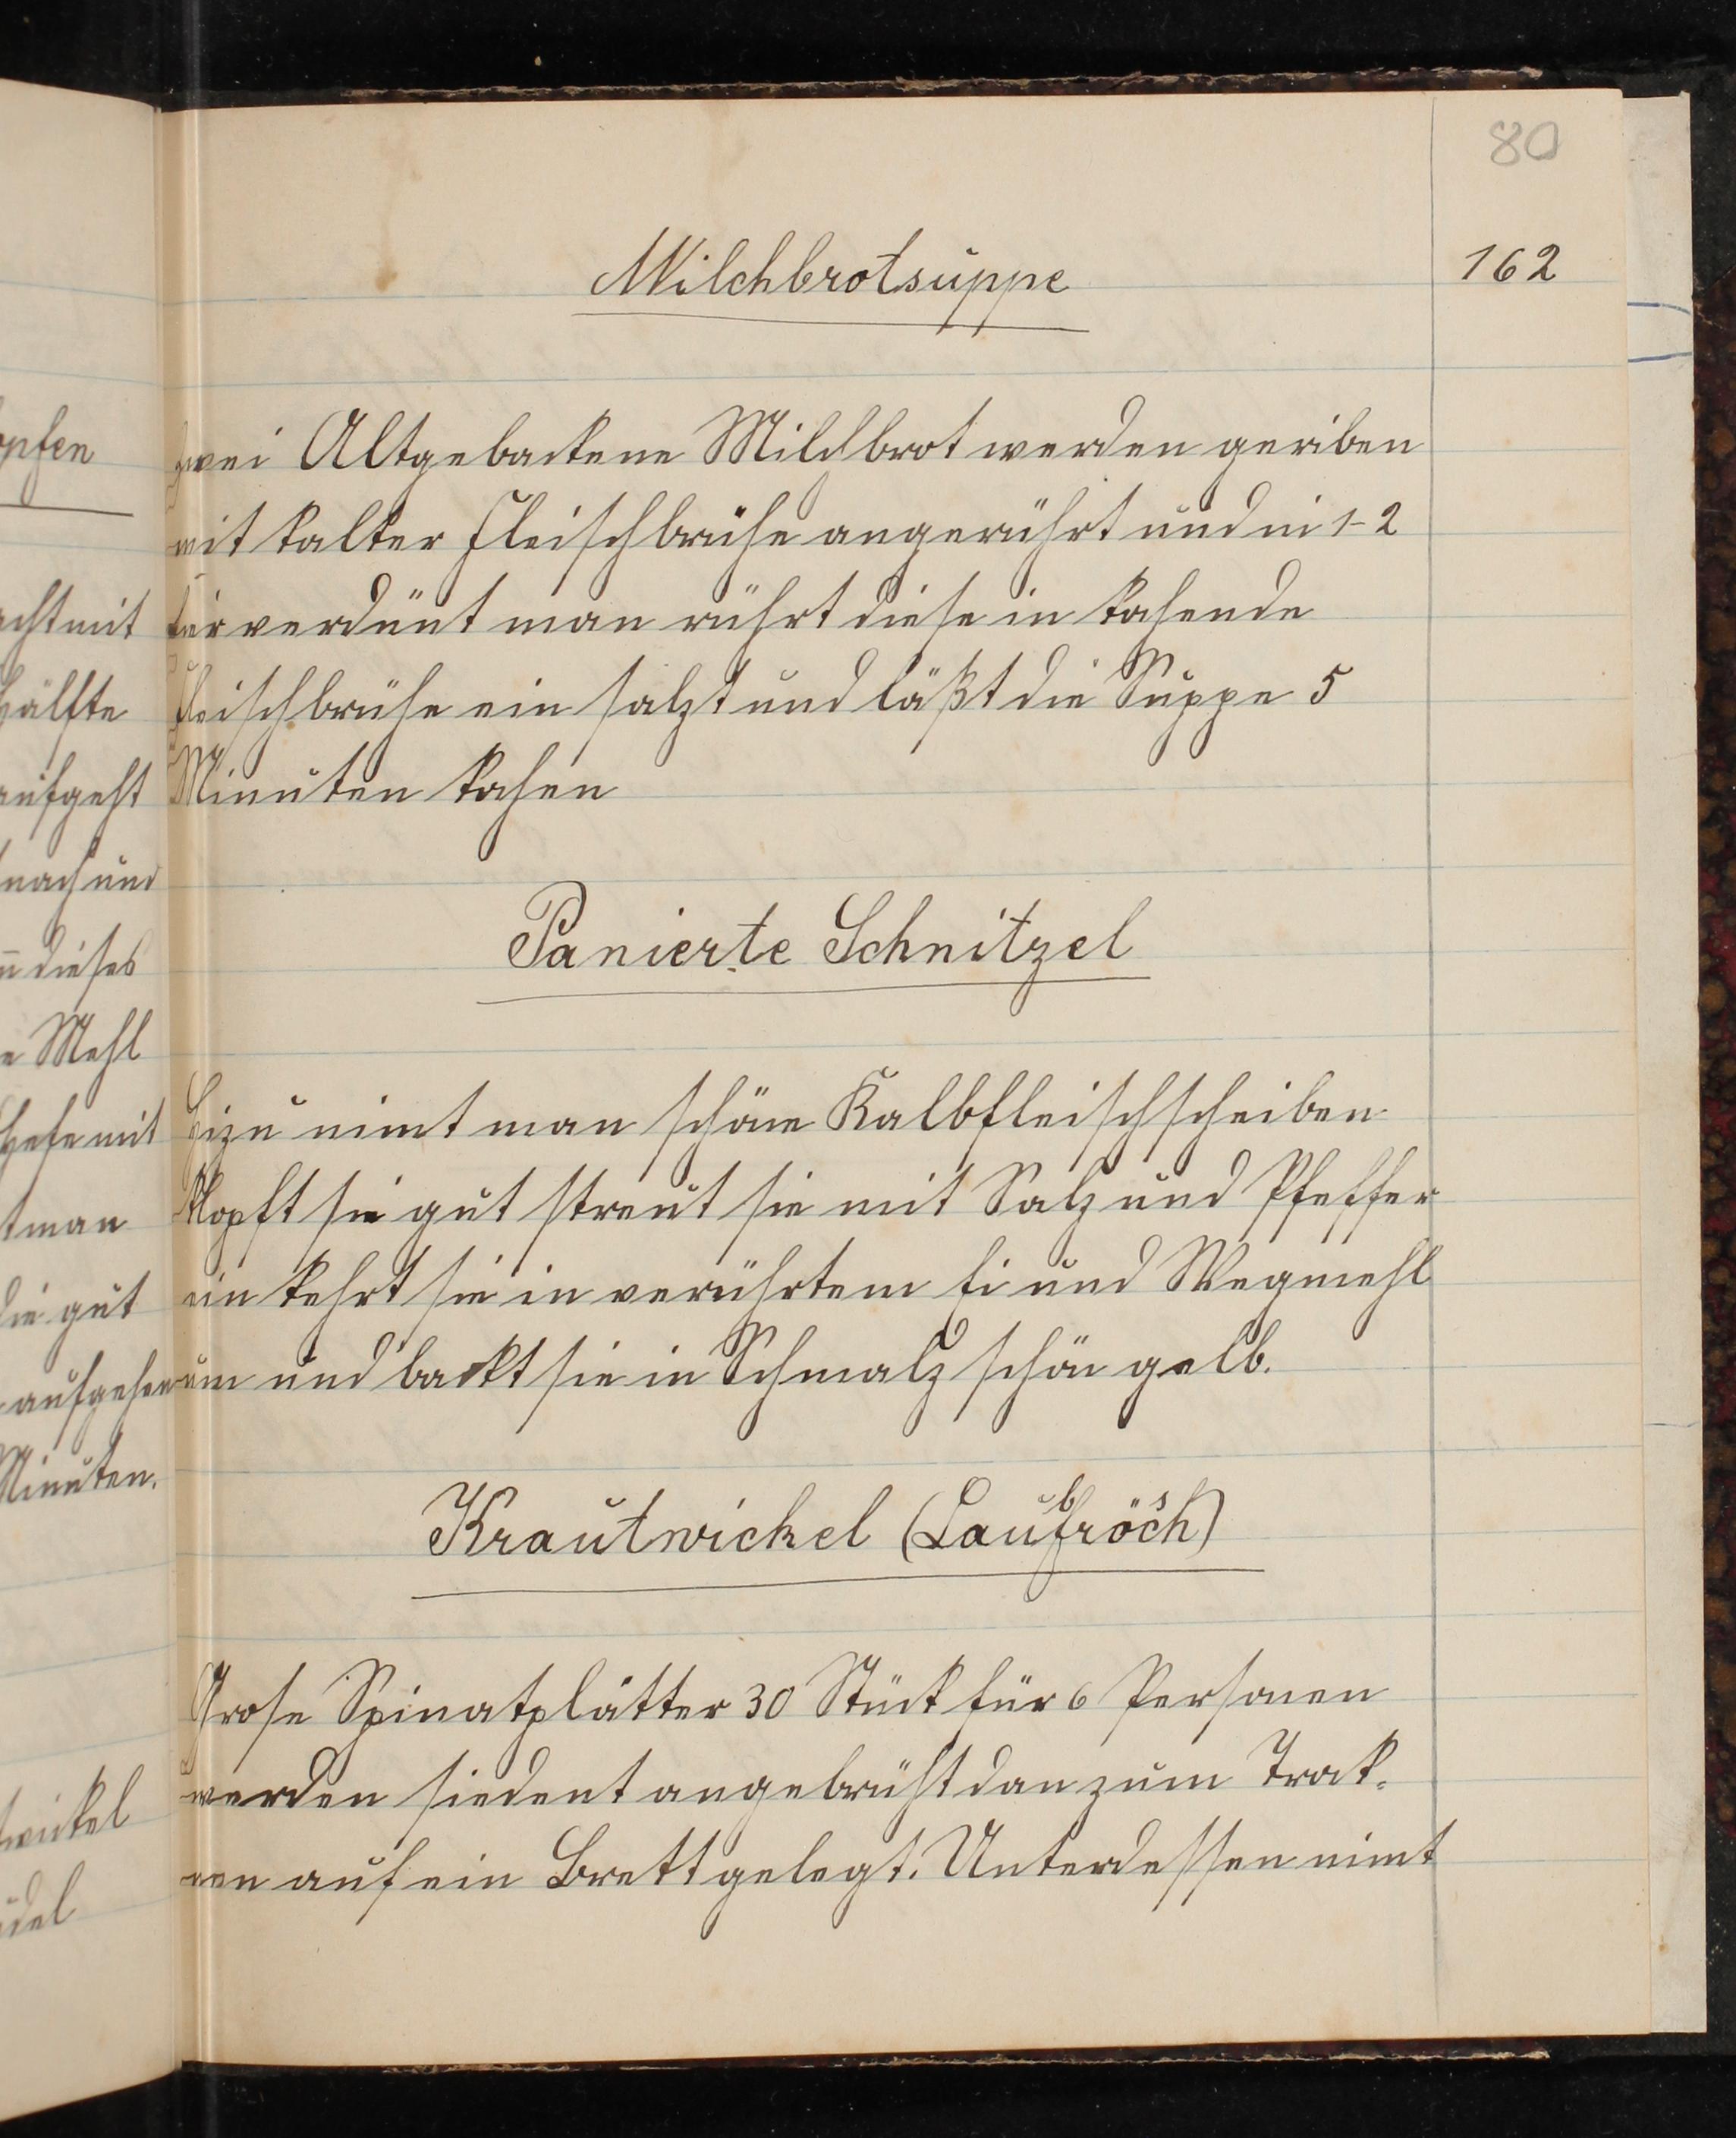 80
162
Milchbrotsuppe
zwei Altgebackene Milchbrot werden geriben
mit kalter Fleischbrühe angerührt und mi 1-2
Eier verdünt man rührt diese in kochende
Fleischbrühe ein salzt und läßt die Suppe 5
Minuten kochen
Panierte Schnitzel
Hizu nimt man schöne Kalbfleischscheiben
klopft sie gut streut sie mit Salz und Pfeffer
ein kehrt sie in verrührtem Ei und Wegmehl
um und backt sie in Schmalz schön gelb.
Krautwickel (Laubfrösch)
Grose Spinatplätter 30 Stück für 6 Personen
werden siedent angebrüht dan zum Trok-
nen auf ein Brett gelegt. Unterdessen nimt
opfen
acht mit
Hälfte
aufgeht
nach und
dieses
Mehl
Hefe mit
man
die gut
aufgehen
Minuten.
wickel